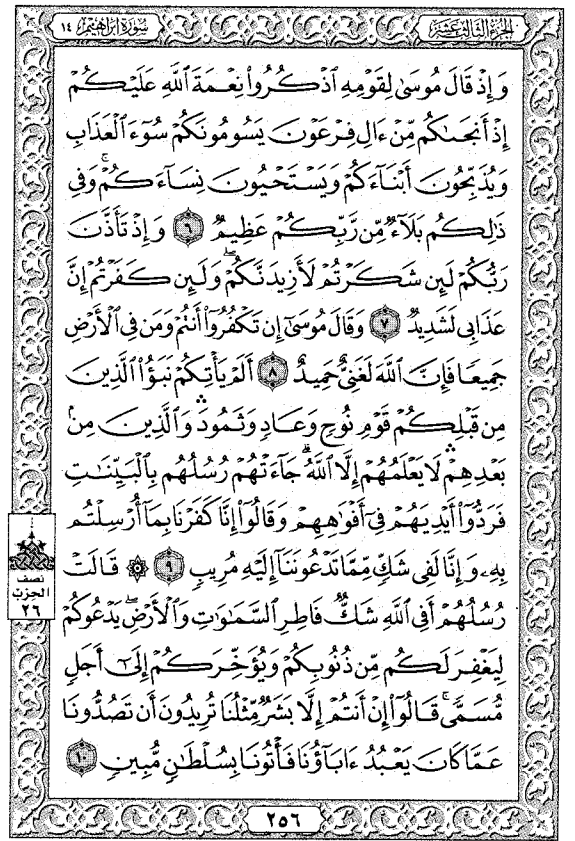 سُورَةُ إِبْرَاهِيمَ ١٤
الجُزْءُ الثَّالِثَ عَشَرَ
وَإِذْ قَالَ مُوسَىٰ لِقَوْمِهِ ٱذْكُرُوا۟ نِعْمَةَ ٱللَّهِ عَلَيْكُمْ
إِذْ أَنجَىٰكُم مِّنْ ءَالِ فِرْعَوْنَ يَسُومُونَكُمْ سُوٓءَ ٱلْعَذَابِ
وَيُذَبِّحُونَ أَبْنَآءَكُمْ وَيَسْتَحْيُونَ نِسَآءَكُمْ ۚ وَفِى
ذَٰلِكُم بَلَآءٌ مِّن رَّبِّكُمْ عَظِيمٌ ٦ وَإِذْ تَأَذَّنَ
رَبُّكُمْ لَئِن شَكَرْتُمْ لَأَزِيدَنَّكُمْ ۖ وَلَئِن كَفَرْتُمْ إِنَّ
عَذَابِى لَشَدِيدٌ ٧ وَقَالَ مُوسَىٰٓ إِن تَكْفُرُوٓا۟ أَنتُمْ وَمَن فِى ٱلْأَرْضِ
جَمِيعًا فَإِنَّ ٱللَّهَ لَغَنِىٌّ حَمِيدٌ ٨ أَلَمْ يَأْتِكُمْ نَبَؤُا۟ ٱلَّذِينَ
مِن قَبْلِكُمْ قَوْمِ نُوحٍ وَعَادٍ وَثَمُودَ ۛ وَٱلَّذِينَ مِنۢ
بَعْدِهِمْ ۛ لَا يَعْلَمُهُمْ إِلَّا ٱللَّهُ ۚ جَآءَتْهُمْ رُسُلُهُم بِٱلْبَيِّنَٰتِ
فَرَدُّوٓا۟ أَيْدِيَهُمْ فِىٓ أَفْوَٰهِهِمْ وَقَالُوٓا۟ إِنَّا كَفَرْنَا بِمَآ أُرْسِلْتُم
بِهِۦ وَإِنَّا لَفِى شَكٍّ مِّمَّا تَدْعُونَنَآ إِلَيْهِ مُرِيبٍ ٩ ۞ قَالَتْ
رُسُلُهُمْ أَفِى ٱللَّهِ شَكٌّ فَاطِرِ ٱلسَّمَٰوَٰتِ وَٱلْأَرْضِ ۖ يَدْعُوكُمْ
لِيَغْفِرَ لَكُم مِّن ذُنُوبِكُمْ وَيُؤَخِّرَكُمْ إِلَىٰٓ أَجَلٍ
مُّسَمًّى ۚ قَالُوٓا۟ إِنْ أَنتُمْ إِلَّا بَشَرٌ مِّثْلُنَا تُرِيدُونَ أَن تَصُدُّونَا
عَمَّا كَانَ يَعْبُدُ ءَابَآؤُنَا فَأْتُونَا بِسُلْطَٰنٍ مُّبِينٍ ١٠
نصف
الحزب
٢٦
٢٥٦